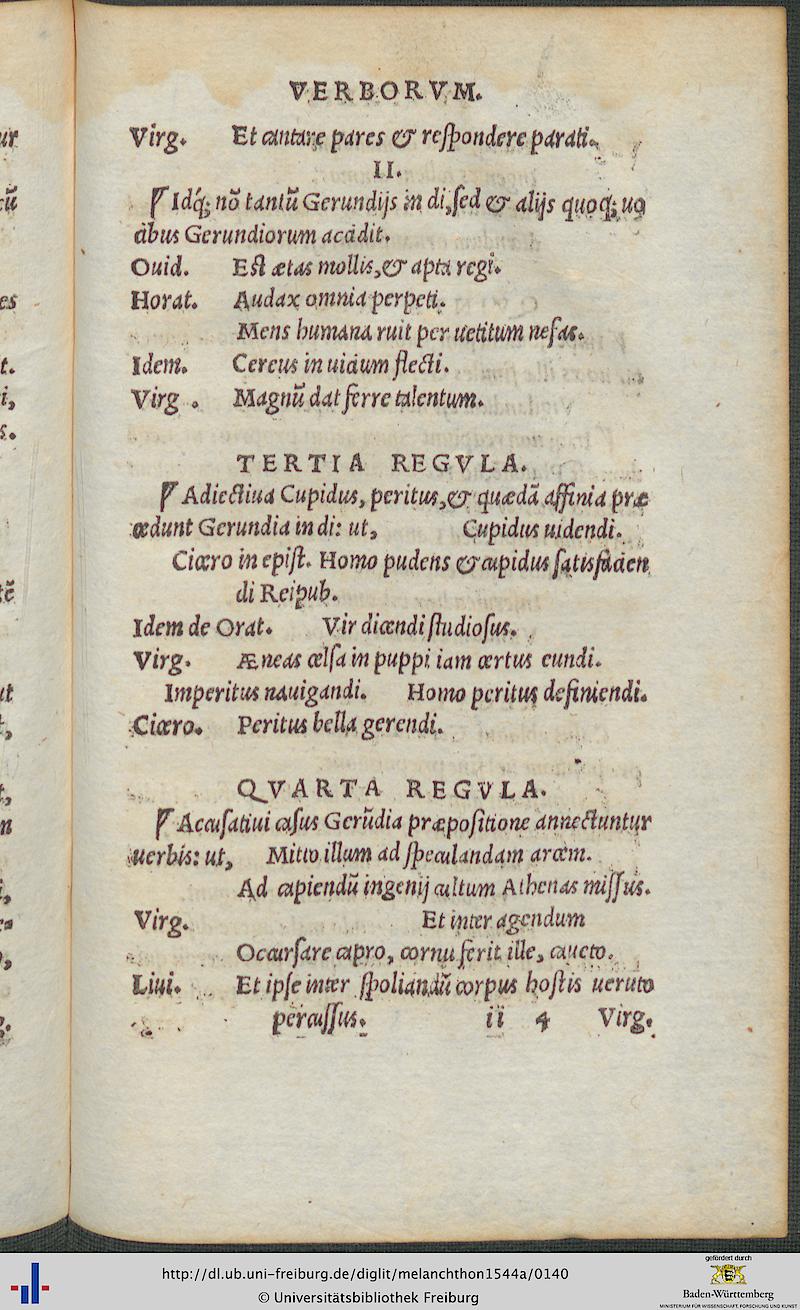 VERBORVM.
Virg. Et cantare pares & reſpondere parati.
II.
Idq́; nõ tantũ Gerundijs in di, ſed & alijs quoq; uo
cibus Gerundiorum accidit.
Ouid. Eſt ætas mollis, & apta regi.
Horat. Audax omnia perpeti.
Mens humana ruit per uetitum nefas.
Idem. Cereus in uicium flecti.
Virg. Magnũ dat ferre talentum.
TERTIA REGVLA.
Adiectiua Cupidus, peritus, & quædã affinia præ
cedunt Gerundia in di: ut, Cupidus uidendi.
Cicero in epiſt. Homo pudens & cupidus ſatisfacien
di Reipub.
Idem de Orat. Vir dicendi ſtudioſus.
Virg. Æneas celſa in puppi iam certus eundi.
Imperitus nauigandi. Homo peritus definiendi.
Cicero. Peritus bella gerendi.
QVARTA REGVLA.
Accuſatiui caſus Gerũdia præpoſitione annectuntur
uerbis: ut, Mitto illum ad ſpeculandam arcem.
Ad capiendũ ingenij cultum Athenas miſſus.
Virg. Et inter agendum
Occurſare capro, cornu ferit ille, caueto.
Liui. Et ipſe inter ſpoliandũ corpus hoſtis ueruto
percuſſus. ii 4 Virg.
http://dl.ub.uni-freiburg.de/diglit/melanchthon1544a/0140
© Universitätsbibliothek Freiburg
gefördert durch
Baden-Württemberg
MINISTERIUM FÜR WISSENSCHAFT, FORSCHUNG UND KUNST